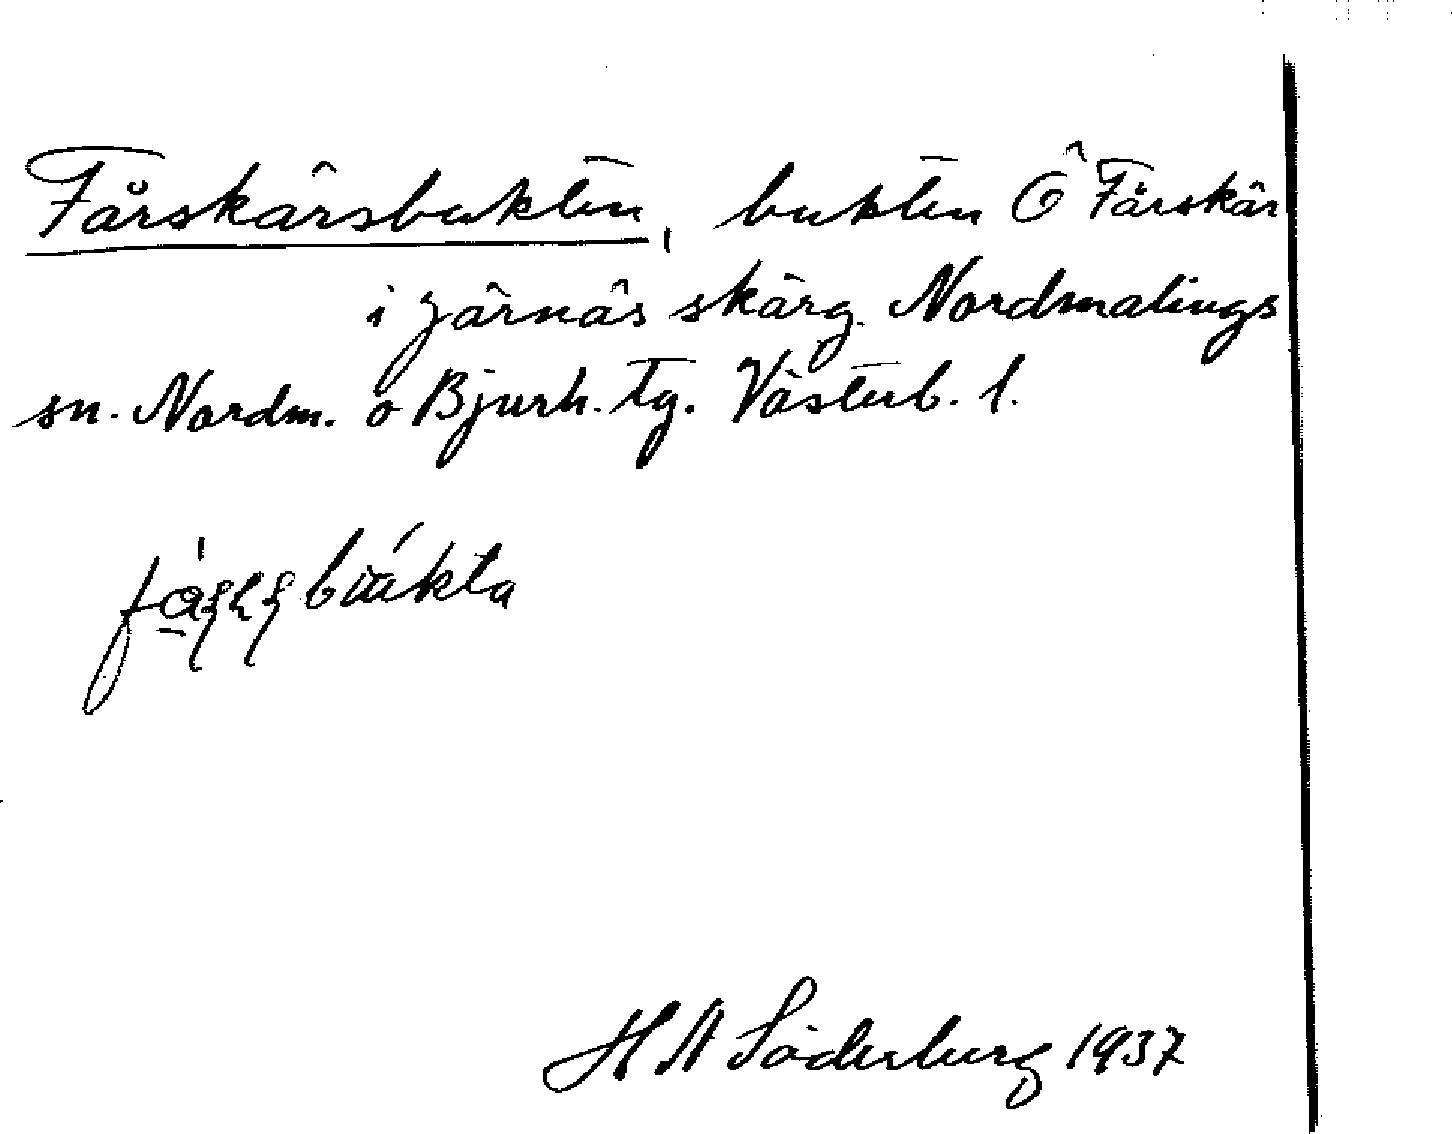 Fårskärsbukten, bukten Ö Fårskär
i Järnäs skärg. Nordmalings
sn. Nordm. o Bjurh. tg. Västerb. l.
H N Söderberg 1937